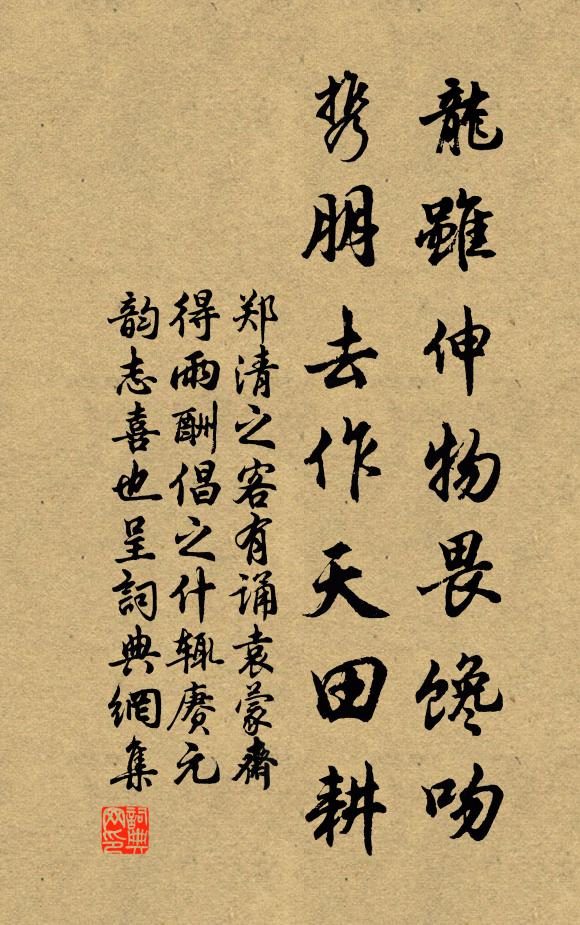 龍雖伸物畏馋吻
携朋去作天田耕
郑清之客有诵袁蒙齋
得雨酬倡之什辄赓元
韵志喜也呈詞典網集
詞典网印